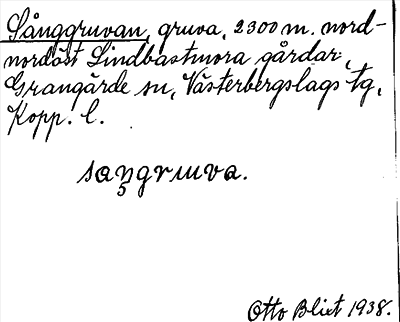 Långgruvan, gruva, 2300 m. nord-
nordost Lindbastmora gårdar,
Grangärde sn, Västerbergslags tg,
Kopp. l.
Otto Blixt 1938.